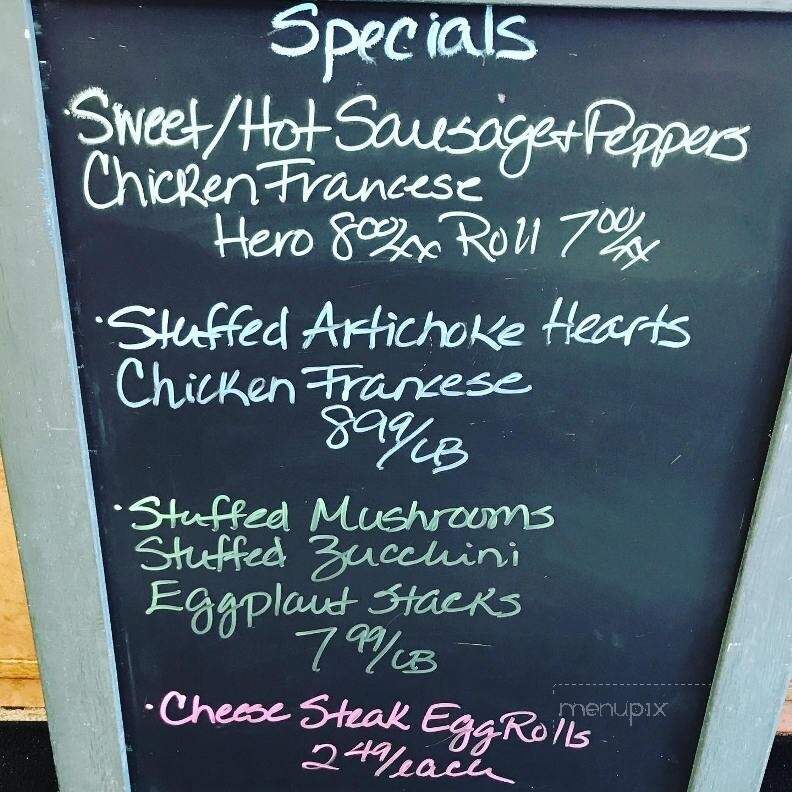 Specials
·Sweet/Hot Sausage+Peppers
Chicken Francese
Hero 8.00/xx Roll 7.00/xx
·Stuffed Artichoke Hearts
Chicken Francese
8 99/LB
·Stuffed Mushrooms
Stuffed Zucchini
Eggplant Stacks
7 99/LB
·Cheese Steak Egg Rolls
2 49/each
menupix